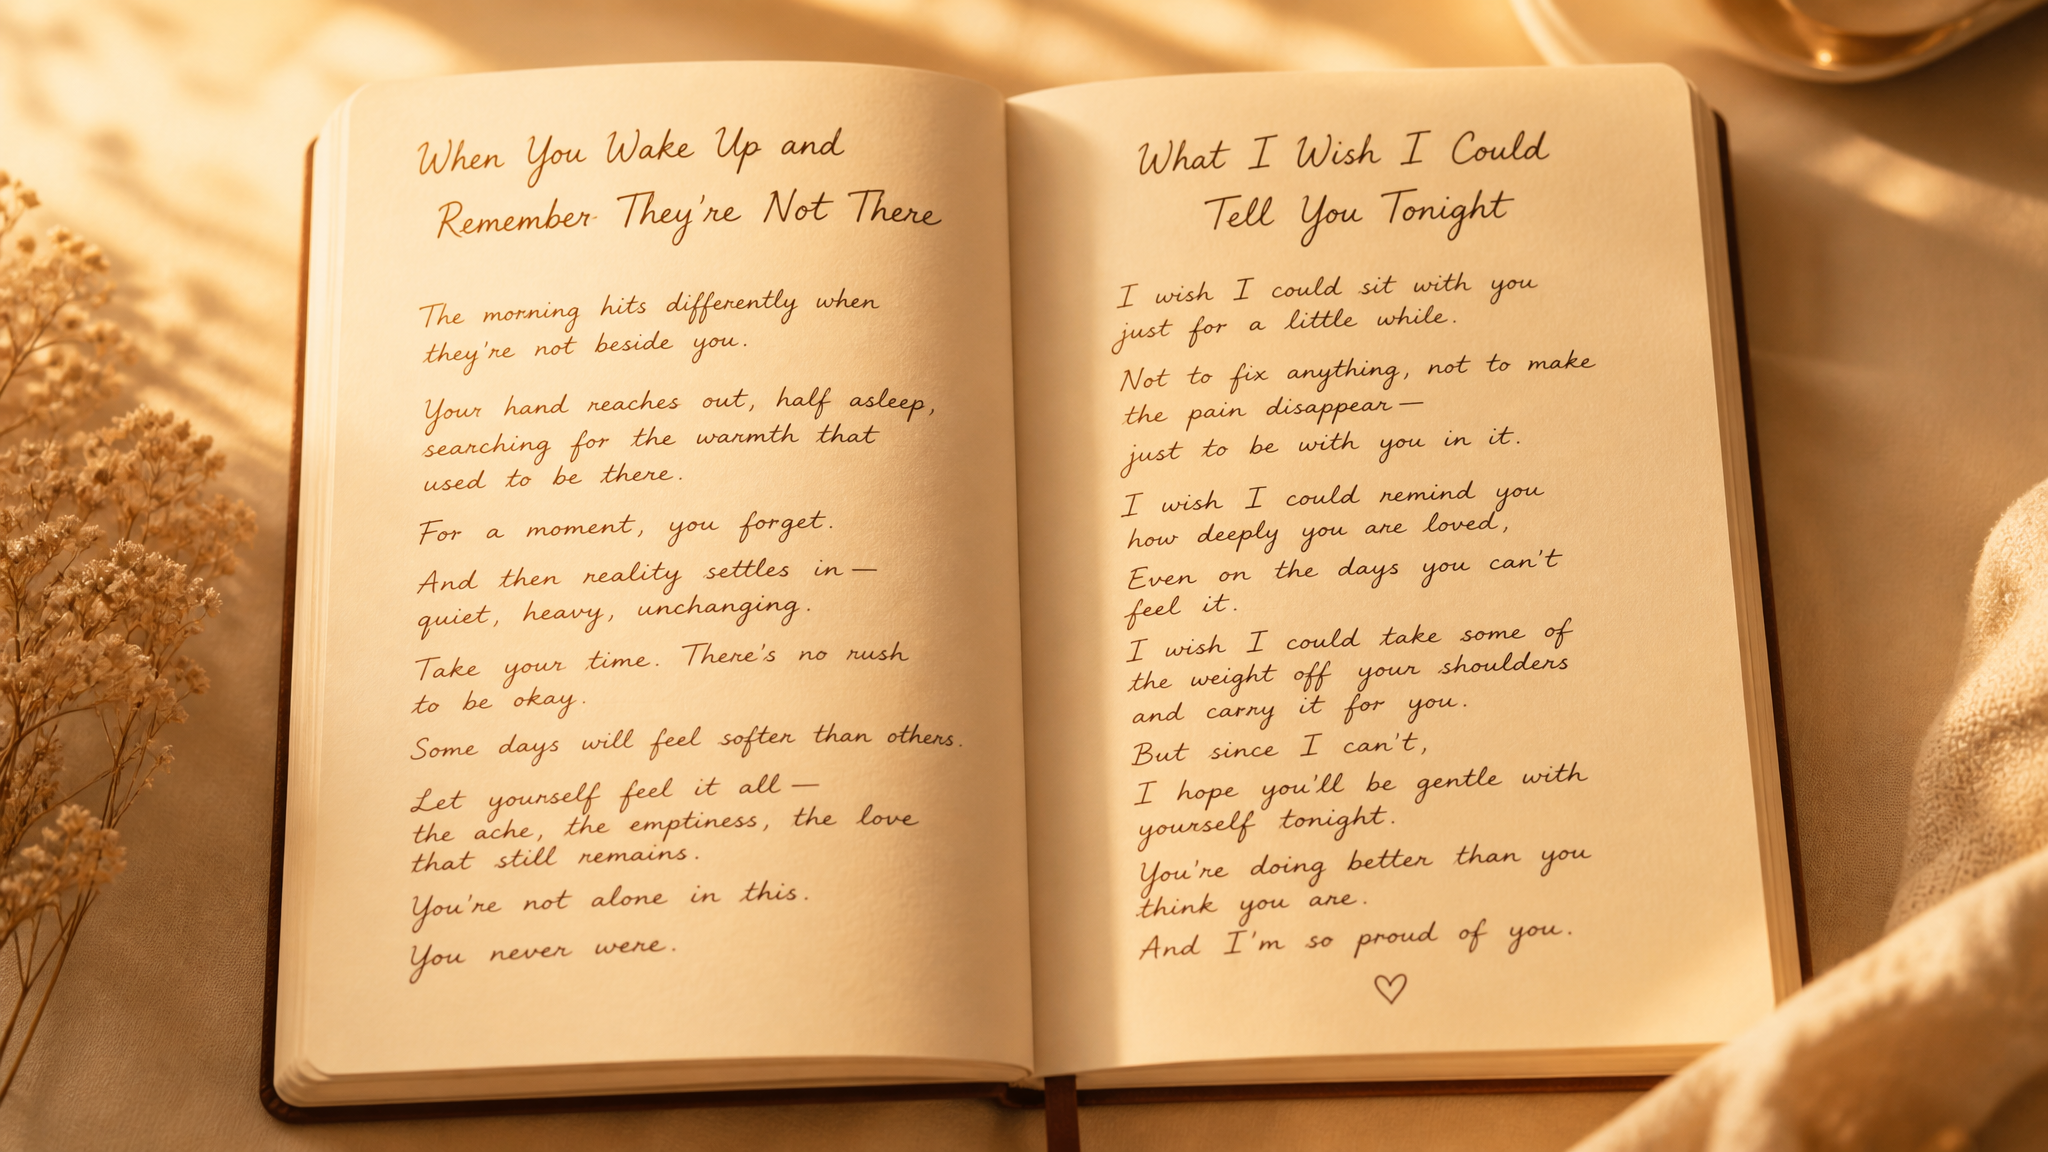 When You Wake Up and
Remember They're Not There
The morning hits differently when
they're not beside you.
Your hand reaches out, half asleep,
searching for the warmth that
used to be there.
For a moment, you forget.
And then reality settles in—
quiet, heavy, unchanging.
Take your time. There's no rush
to be okay.
Some days will feel softer than others.
Let yourself feel it all—
the ache, the emptiness, the love
that still remains.
You're not alone in this.
You never were.
What I Wish I Could
Tell You Tonight
I wish I could sit with you
just for a little while.
Not to fix anything, not to make
the pain disappear—
just to be with you in it.
I wish I could remind you
how deeply you are loved,
Even on the days you can't
feel it.
I wish I could take some of
the weight off your shoulders
and carry it for you.
But since I can't,
I hope you'll be gentle with
yourself tonight.
You're doing better than you
think you are.
And I'm so proud of you.
♡